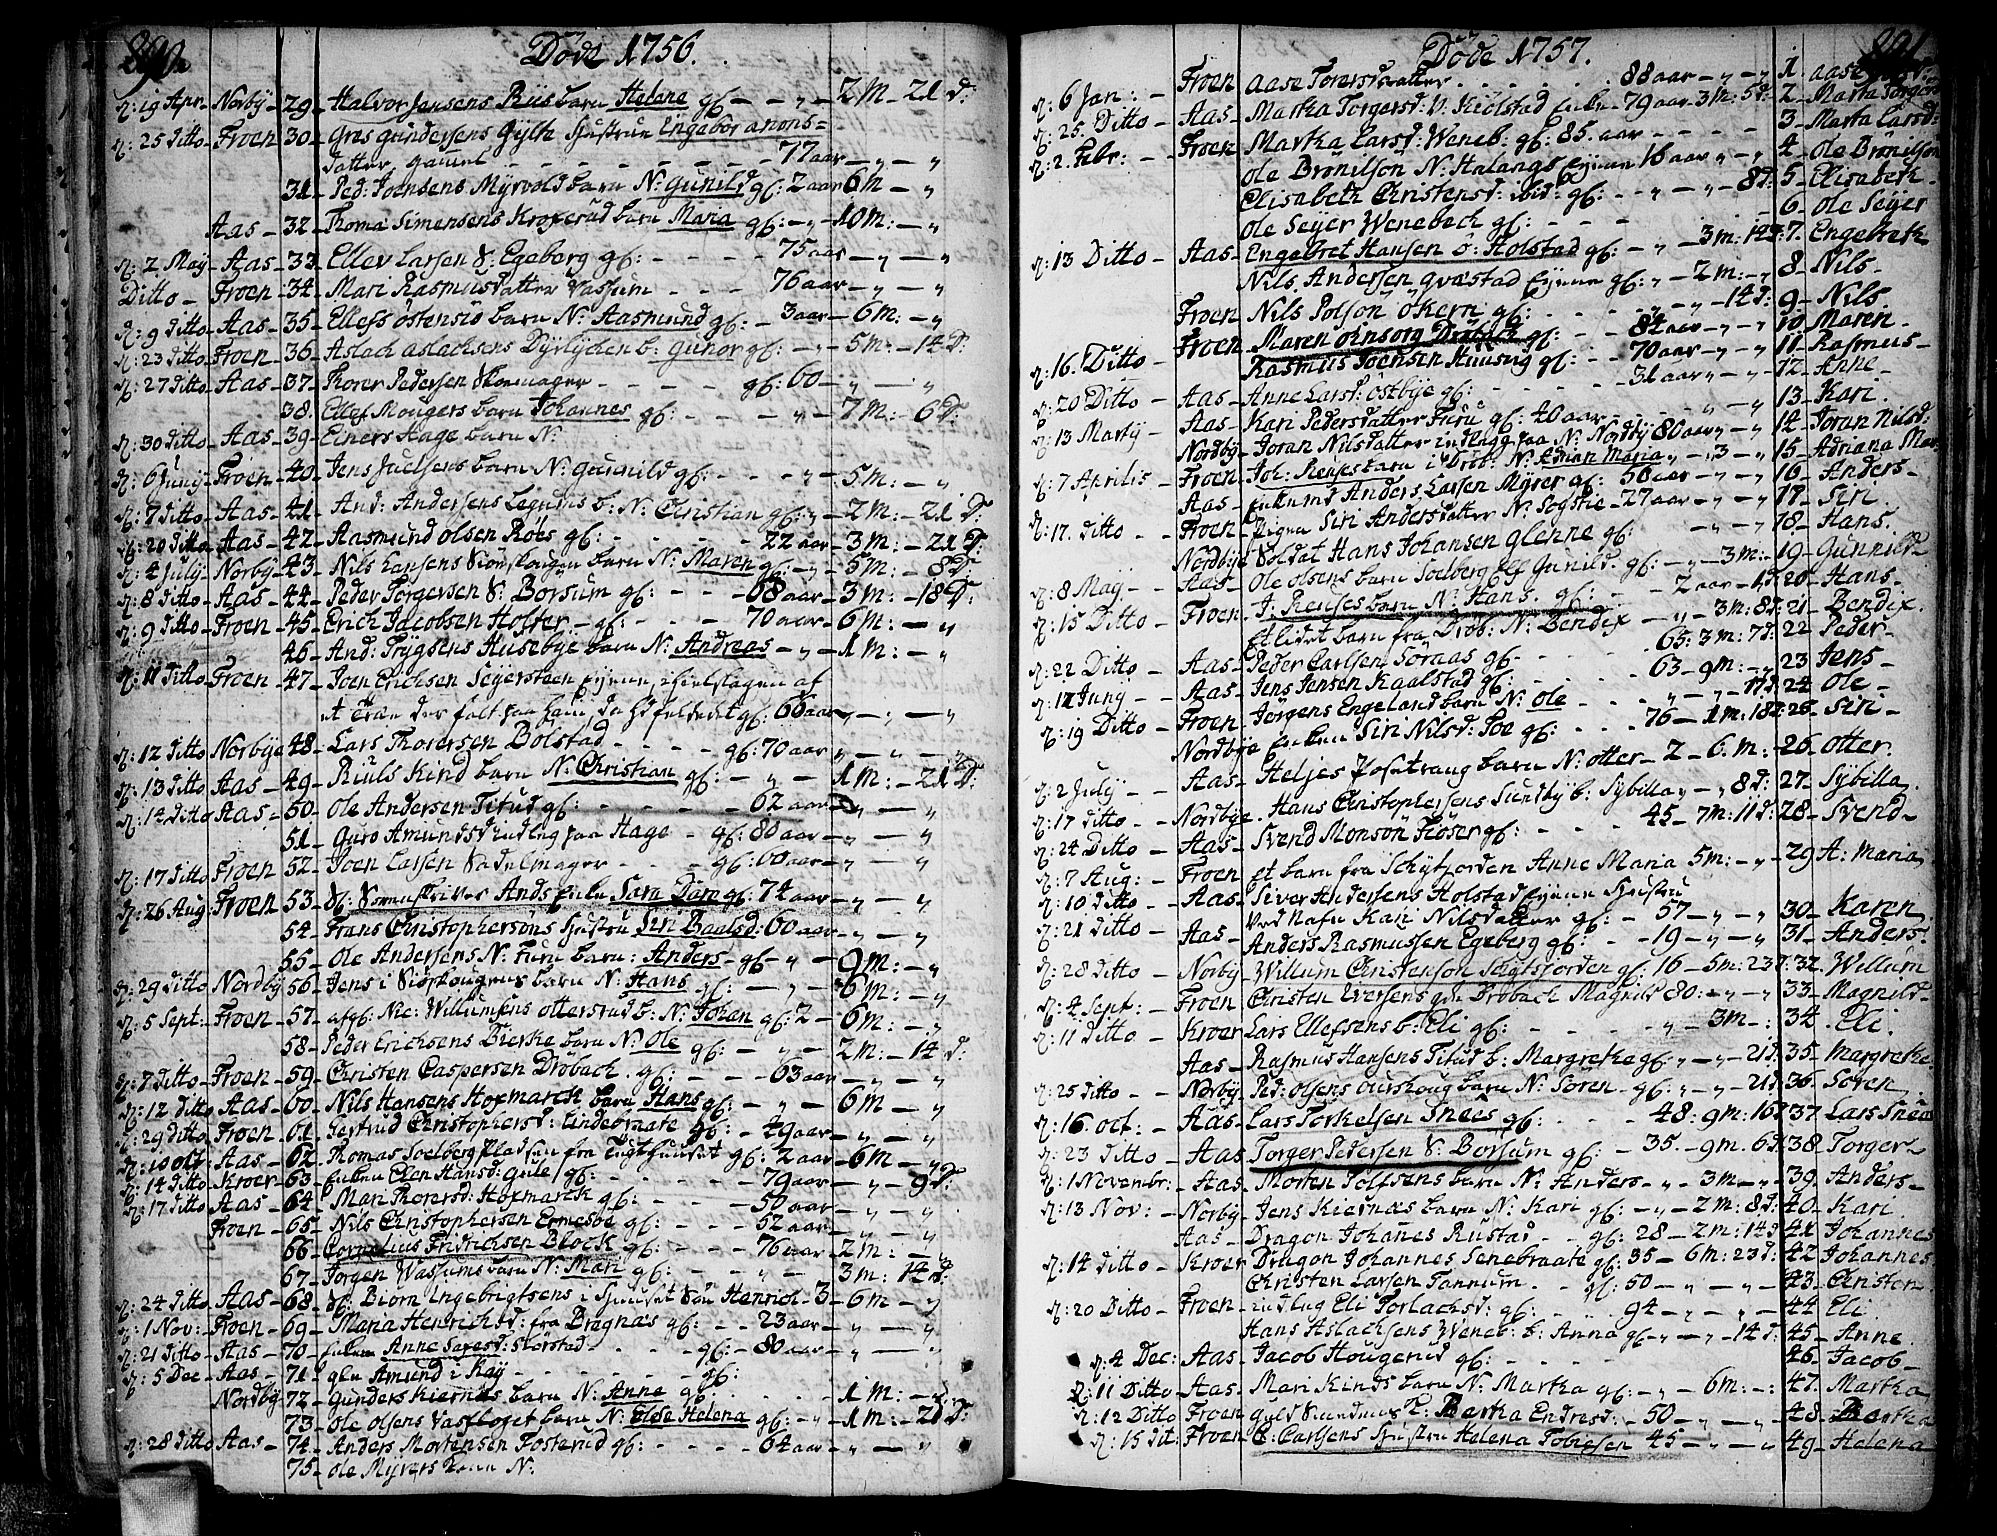 Döde 1756.
d: 19 Apr. Norby 29 Halvor Jensens Riis barn Helene gl: — „ — 2 M — 21 D:
d: 25 Ditto Froen 30 Gres Gundersens Hustrue Ingebor anons=
datter, gammel 77 aar — „ — „
31 Ped: Joensens Myrvold barn N: Gunild gl: 2 aar 6 M — „
Aas 32 Thoma Simensens Kroxerud barn Maria gl: — „ — 10 M: — „
d: 2 May Aas 33 Ellev Larsen S: Egeberg gl: 75 aar — „ — „
Ditto Froen 34 Mari Rasmusdatter Vassum 76 aar — „ — „
d: 9 Ditto Aas 35 Ellefs Östensiö barn N: Aasmund gl: 3 aar — 6 M: — „
d: 23 Ditto Froen 36 Aslach Aslachsens Dyrlychen b: Gunor gl: — „ — 5 M: — 14 D:
d: 27 Ditto Aas 37 Thorer Pedersen Skomager gl: 60 — „ — „
38 Ellef Mougers barn Johannes gl: — „ — 7 M: — 6 D:
d: 30 Ditto Aas 39 Einers Hage barn N:
d: 6 Juny Froen 40 Jens Juelsens barn N: Gunild gl: — „ — 5 M: — „
d: 7 Ditto Aas 41 And: Andersens Legnims b: N: Christian gl: „ — 2 M: — 21 D:
d: 20 Ditto Aas 42 Aasmund Olsen Röös gl: 22 aar — 3 M: — 21 D:
d: 4 July Norby 43 Nils Hansens Siöskougen barn N: Maren gl: — „ — 5 M: — 8 D:
d: 8 Ditto Aas 44 Peder Torgersen S: Borsum gl: 68 aar — 3 M: — 18 D:
d: 9 Ditto Froen 45 Erich Jacobsen Holter gl: 70 aar — 6 M: — „
46 And: Trygsens Husebye barn N: Andreas — „ — 1 M: — „
d: 11 Ditto Froen 47 Joen Erichsen Seyersteen Eyene, ihielslagen af
et Træe der falt paa ham da hd feldedet gl: 66 aar — „ — „
d: 12 Ditto Norbye 48 Lars Thorersen Bölstad gl: 70 aar „ — „ — „
d: 13 Ditto Aas 49 Kiuls Kind barn N: Christian gl: — „ — 1 M: — 21 D:
d: 14 Ditto Aas 50 Ole Andersen Titud gl: 62 aar — „ — „
51 Guro Amundsd: Indlag paa Hage gl: 80 aar — „ — „
d: 17 Ditto Froen 52 Joen Larsen Sadelmager gl: 60 aar — „ — „
d: 26 Aug: Froen 53 Ands Enke Sara Dam gl: 74 aar — „ — „
54 Frans Christophersöns Hustru Siri Paalsd: 60 aar — „ — „
55 Ole Andersens N: Furu barn: Anders gl: — „ — 9 M: — „
d: 29 Ditto Nordby 56 Jens i Siöskougens barn N: Hans gl: — „ — 6 M: — „
d: 5 Sept: Froen 57 afgl: Nic: Willumsens Otterstad b: N: Johan gl: 2 — 6 M: — „
58 Peder Erichsens Bierke barn N: Ole gl: — „ — 2 M: — 14 D:
d: 7 Ditto Froen 59 Christen Caspersen Dröbach gl: 63 aar — „ — „
d: 12 Ditto Aas 60 Nils Hansens Hoxmarck barn Hans gl: — „ — 6 M — „
d: 29 Ditto Froen 61 Gertrud Christophersd: Lindebraate gl: 49 aar — „ — „
d: 10 Oct: Aas 62 Thomas Soelberg Pladsen fra Tugthuuset gl: 2 aar — 6 M — „
d: 14 Ditto Kroer 63 Enken Elen Hansd: Gule gl: 79 aar — „ — 9 D:
d: 17 Ditto Aas 64 Mari Thorersd: Hoxmarck gl: 50 aar — „ — „
Froen 65 Nils Christophersen Ermesbe gl: 52 aar — „ — „
66 Cornelius Fridrichsen Block gl: 76 aar — 2 M: — „
67 Jörgen Wassums barn N: Mari gl: — „ — 3 M: 14 D:
d: 24 Ditto Aas 68 Biörn Ingebrigtsens i Huuset Sön Henrich 3 — 6 M: — „
d: 1 Nov: Froen 69 Maria Henrichsd: fra Bragnæs gl: 23 aar — „ — „
d: 21 Ditto Aas 70 Enken Anne Saxesd: Skörstad gl: 80 aar — „ — „
d: 5 Dec Aas 71 glm Amund i Kay gl:
Nordby 72 Gunders Kiernes barn N: Anne gl: 1 M: — „
73 Ole Olsens Vasfloset barn N: Else Helena gl: — „ — 1 M: — 21 D:
d: 28 Ditto Aas 74 Anders Mortensen Tosterud gl: 64 aar — „ — „
75 Ole Myrers barn N:
Döde 1757.
d: 6 Jan: Froen Aase Torersdatter 88 aar — „ — „ 1 Aase
d: 25 Ditto Aas Martha Torgersd: N. Kiölstad Enke 79 aar 3 M: 5 D: 2 Marta Torgers
d: 2 Febr: Froen Martha Larsd: Weneb. gl: 85 aar 3 Marta Larsd:
Ole Brönilsön N: Halangs Eyene 16 aar „ — „ 4 Ole Brönilsön
Elisabeth Christensd: ibid: gl: — „ — „ — 8 d: 5 Elisabeth
Ole Seyer Wenebech gl: 6 Ole Seyer
d: 13 Ditto Aas Engebret Hansen o: Holstad gl: — „ 3 m: 14 d: 7 Engebreth
Nils Andersen Qvæstad Eyene gl: „ — 2 m: — „ 8 Nils
Froen Nils Polsön Ökern gl: „ — „ — 14 d: 9 Nils
Froen Maren Ohnsorg Dröbach gl: 82 aar — „ — „ 10 Maren
d: 16 Ditto Rasmus Joensen Huusvig gl: 70 aar — „ — „ 11 Rasmus
d: 20 Ditto Aas Anne Larsd: Östbye gl: 31 aar — „ — „ 12 Anne
d: 13 Marty Aas Kari Pedersdatter Furu gl: 40 aar 13 Kari
Nordby Joran Nilsdatter Indlagg paa N: Nordby 80 aar — „ — „ 14 Joran Nilsd:
d: 7 Aprilis Froen Joh: Renses barn i Dröb: N: Adrian Maria „ — „ 3 — „ 15 Adriana Mar
Aas Enkemd Anders Larsen Myrer gl: 56 aar — „ — „ 16 Anders
d: 17 Ditto Froen Pigen Siri Andersdatter N: Sogstie 27 aar — „ — „ 17 Siri
Nordbye Soldat Hans Johansen Glenne gl: — „ — „ 18 Hans
d: 8 May Aas Ole Olsens barn Soelberg Eff Gunild gl: — „ 3 M: — „ 19 Gunnild
d: 15 Ditto Froen J: Renses barn N: Hans gl: 2 aar — 1 d: 20 Hans
Et lidet barn fra Dröb: N: Bendix — „ — 3 m: 8 d: 21 Bendix
d: 22 Ditto Aas Peder Carlsen Söraas gl: 65: 3 m: 7 d: 22 Peder
d: 12 Juny Aas Jens Jensen Kaalstad gl: 63 — 9 m: — „ 23 Jens
d: 19 Ditto Froen Jörgens Engeland barn N: Ole „ — „ — 17 d: 24 Ole
Nordbye Enken Siri Nilsd: Poe gl: 76 — 1 m: 18 d: 25 Siri
d: 2 July Aas Heljes barn N: Otter — 2 — 6. m: — 26 Otter
d: 17 Ditto Nordbye Hans Christophersens Sundby b: Sybilla „ — „ 8 d: 27 Sybilla
d: 24 Ditto Aas Svend Monsön Fiöser gl: 45 — 7 m: 11 d: 28 Svend
d: 7 Aug: Froen Et barn fra Schytfjorden Anne Maria 5 m: — „ — 29 A: Maria
d: 10 Ditto Aas Siver Andersens Holstad Eyene Hustru
ved Nafn Kari Nilsdatter gl: — 57 — „ — „ 30 Karen
d: 21 Ditto Aas Anders Rasmussen Egeberg gl: — 19 — „ — „ 31 Anders
d: 28 Ditto Norby Willum Christenson Skytsjorden gl: 16 — 5 m: 23 d: 32 Willum
d: 4 Sept: Froen Christen Iversens Dröbach Magnild 80: — „ — „ 33 Magnild
d: 11 Ditto Kroer Lars Ellefsens b: Eli gl: „ — 3 m — : 34 Eli
Aas Rasmus Hansens Titud b: Margrethe gl: „ — „ — 21 d: 35 Margrethe
d: 25 Ditto Norby Ped: Olsens Ourskoug barn N: Sören gl: „ — „ — 21 d: 36 Sören
d: 16 Oct: Aas Lars Torkelsen Snees gl: 48: 9 m: 16 d: 37 Lars Snees
d: 23 Ditto Aas Torger Pedersen S: Borsum gl: 35. — 9 m. 6 d: 38 Torger
d: 1 Novembr: Aas Morten Tolfsens barn N: Anders — „ — 3 m — „ 39 Anders
d: 13 Nov: Norby Jens Kiernæs barn N: Kari gl: — „ — 2 m: 8 d: 40 Kari
Aas Dragon Johanes Rustad gl: 28 — 2 m: 14 d: 41 Johannes
d: 14 Ditto Kroer Dragon Johannes Senebraate gl: 35 — 6 m: 23 d: 42 Johannes
Christen Larsen Tannum gl: 50 — „ — „ 43 Christen
d: 20 Ditto Froen Indlag Eli Torlachsd: gl: 94 — „ — „ 44 Eli
Hans Aslachsens Weneb: b: Änna gl: „ — „ — 14 d: 45 Anne
d: 4 Dec: Aas Jacob Hougerud gl: 46 Jacob
d: 11 Ditto Aas Mari Kinds barn N: Martha gl: — „ — 6 m: — : 47 Martha
d: 12 Ditto Froen Bertha Endresd: 50 — „ — „ 48 Bertha
d: 15 Dit: Froen C: Carlsens Hustru Helena Tobiesen 45 — „ — „ 49 Helena